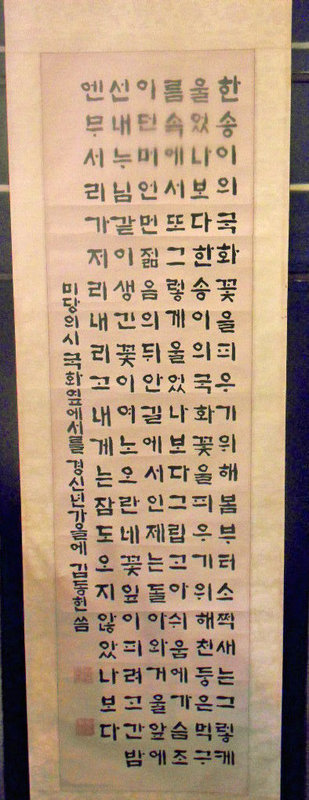 한송이의국화꽃을피우기위해봄부터소쩍새는그렇게
울었나보다한송이의국화꽃을피우기위해천둥은먹구
름속에서또그렇게울었나보다그립고아쉬움에가슴조
이던머언먼젊음의뒤안길에서인제는돌아와거울앞에
선내누님같이생긴꽃이여노오란네꽃잎이피려고간밤
엔무서리가저리내리고내게는잠도오지않았나보다
미당의시 국화옆에서를 경신년가을에 김동현 씀